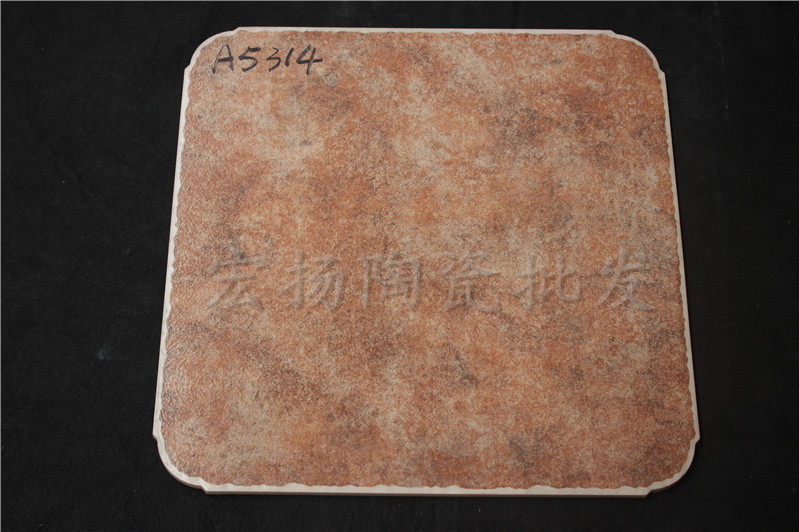 A5314
宏扬陶瓷批发